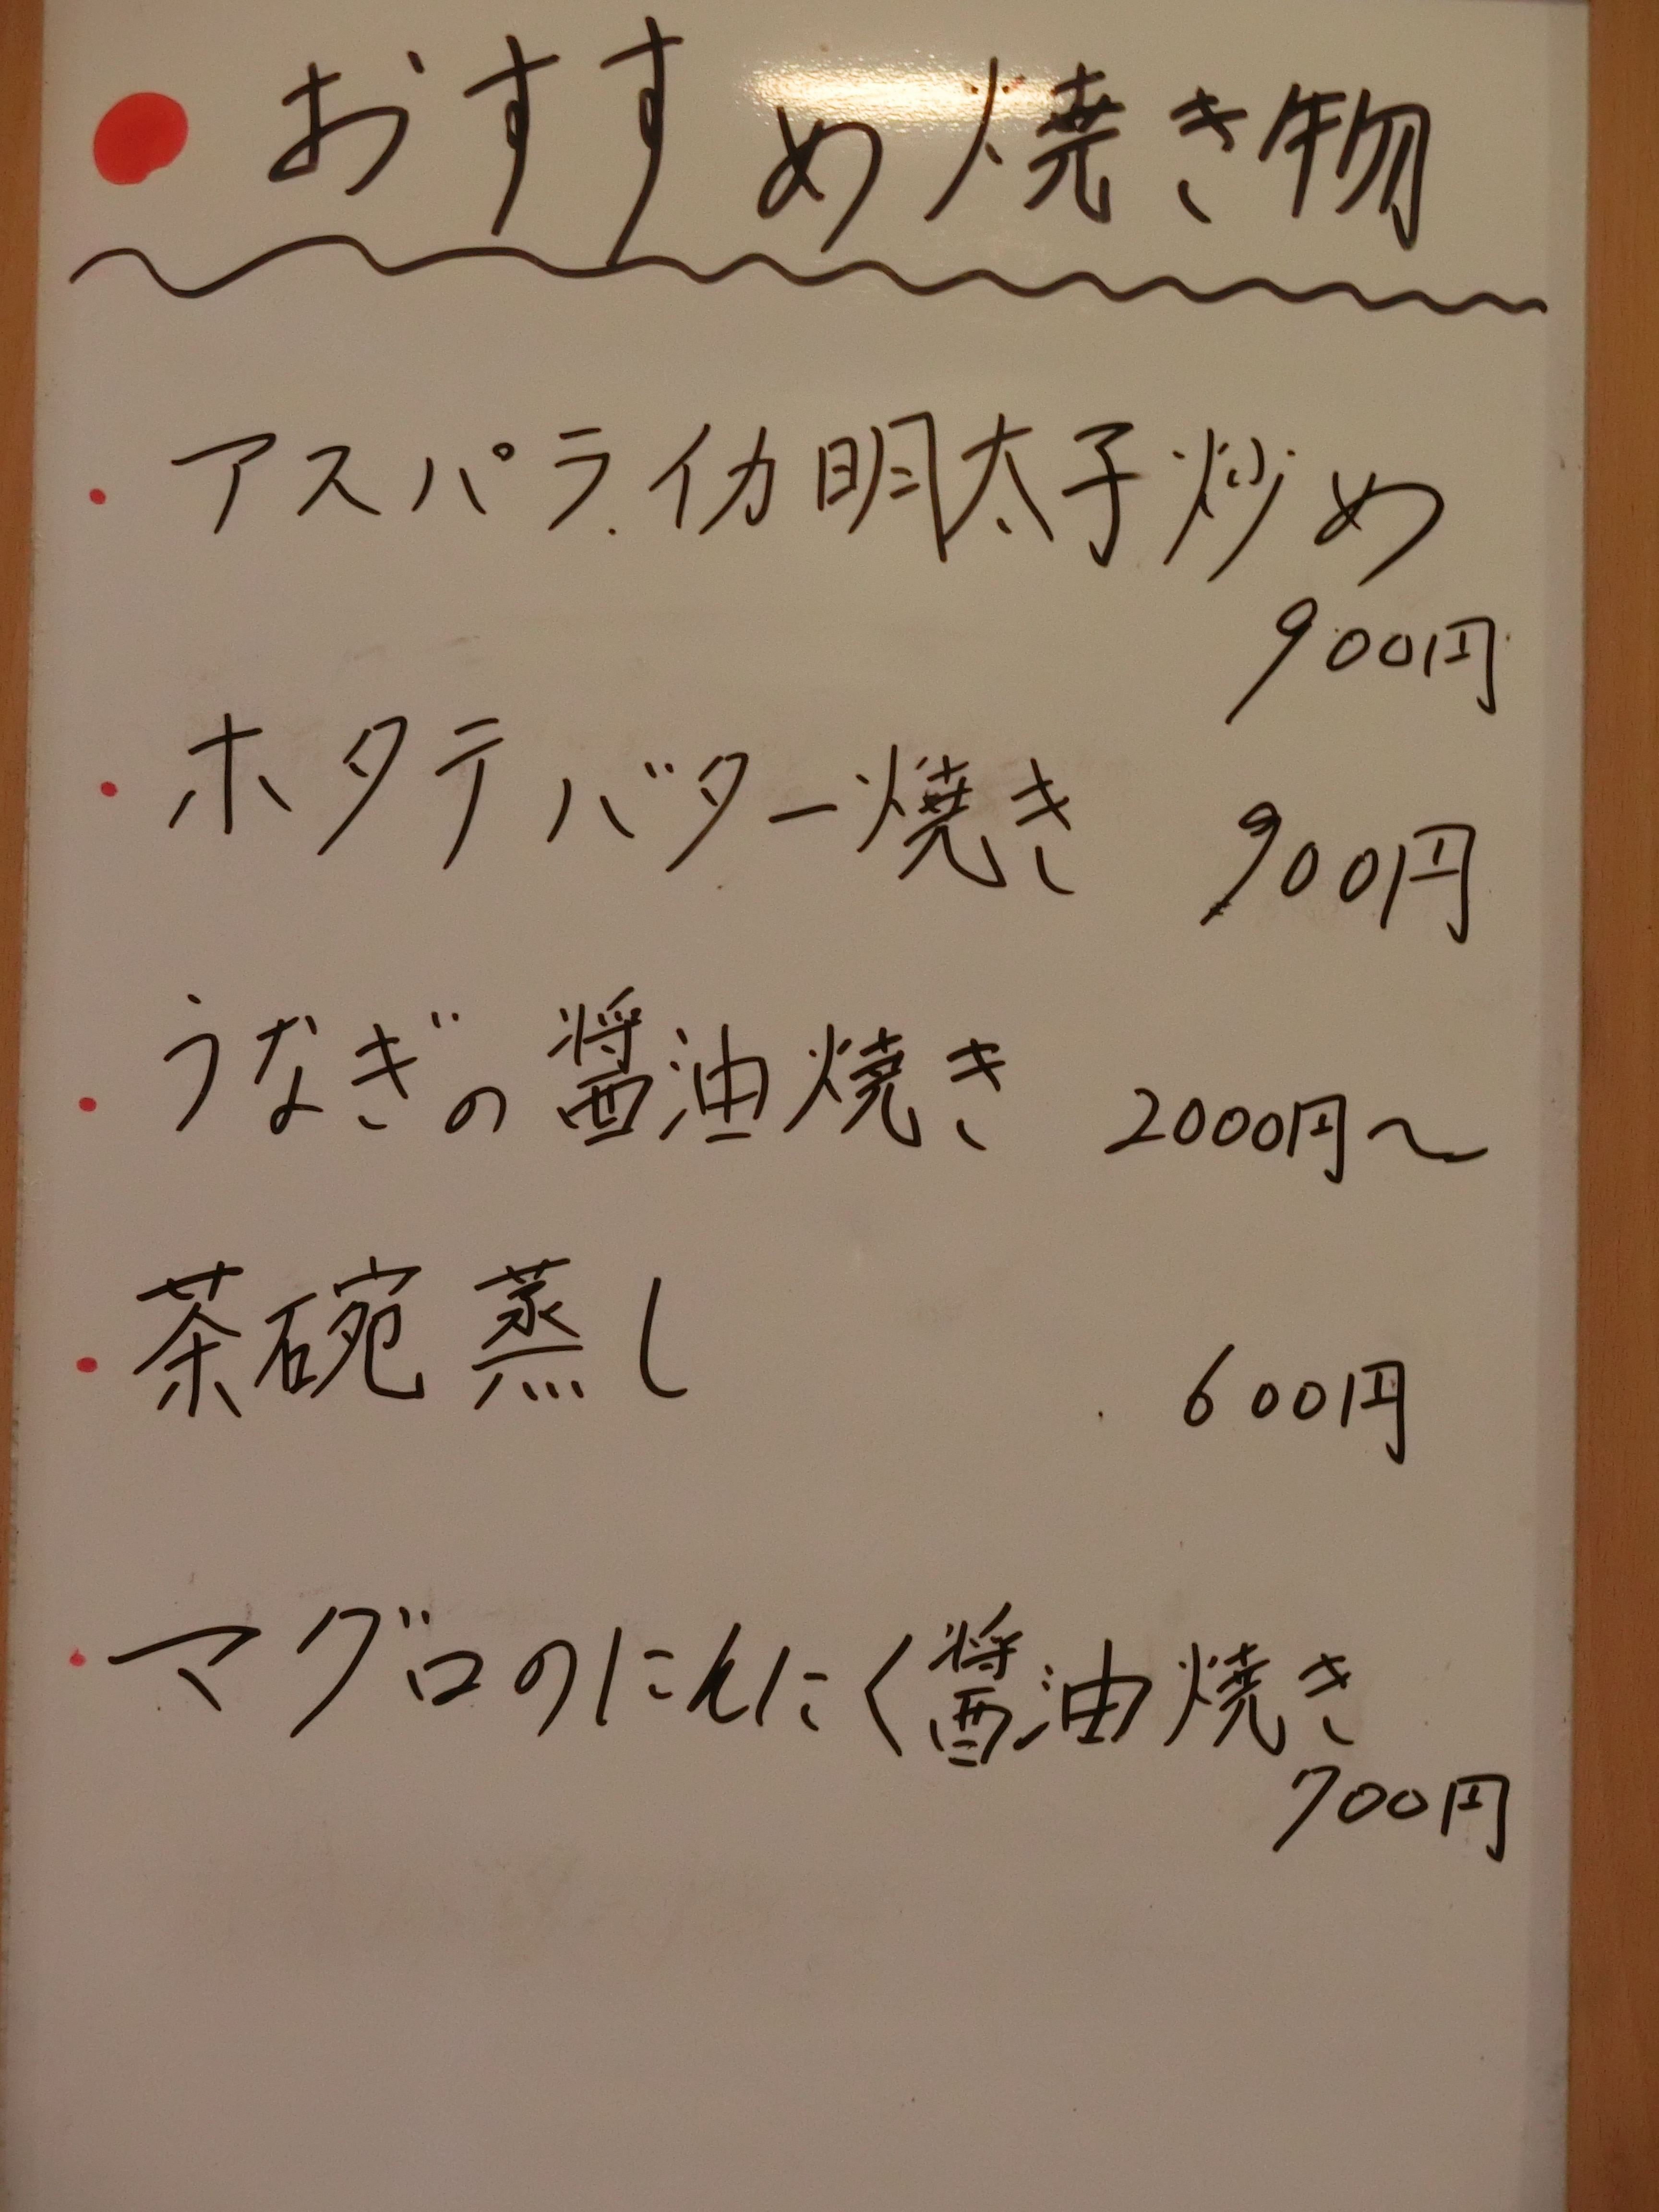 ●おすすめ焼き物
・アスパラ.イカ明太子炒め
900円
・ホタテバター焼き 900円
・うなぎの醤油焼き 2000円～
・茶碗蒸し 600円
・マグロのにんにく醤油焼き
700円